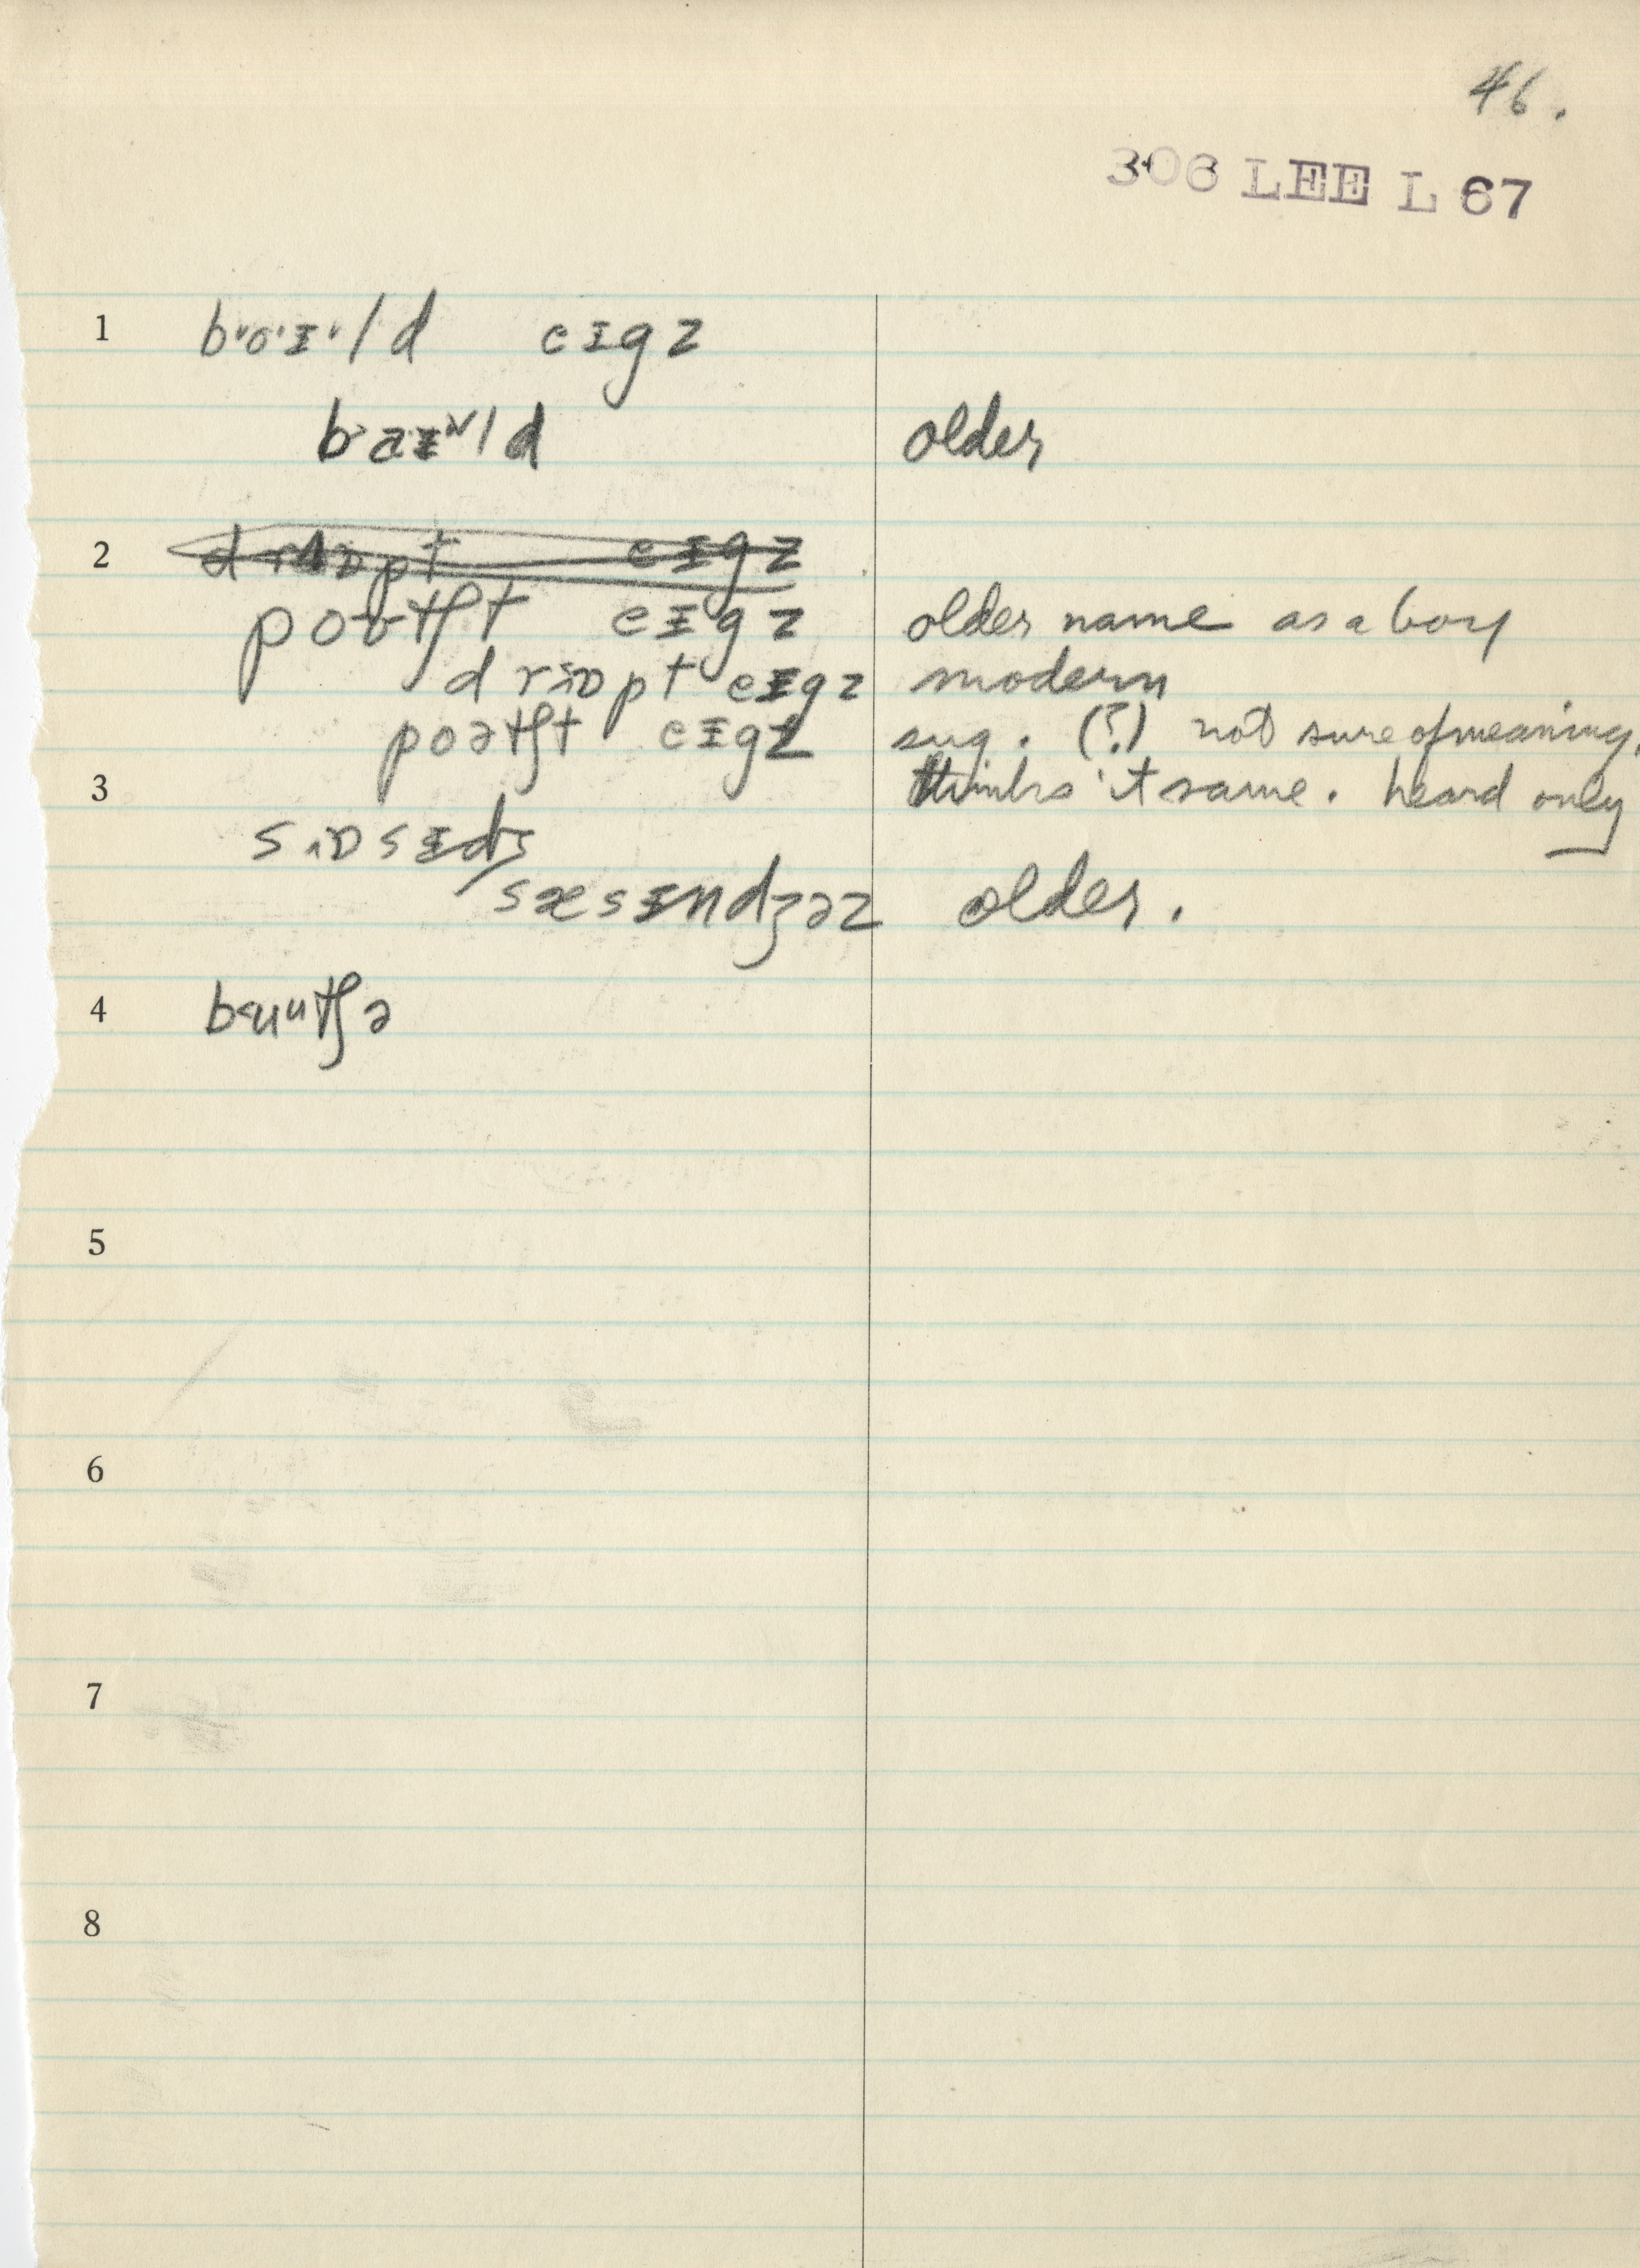 46.
306 LEE L 67
1 bˑoˑɪˑld eɪgz
baɪld older
2 drɒpt eɪgz
poʊtʃt eɪgz older name as a boy
drɒpt eɪgz modern
poətʃt eɪgz sug. (?) not sure of meaning.
3 thinks it same. heard only
sɒsɪdʒ
sæsɪndʒəz older.
4 butʃə
5
6
7
8